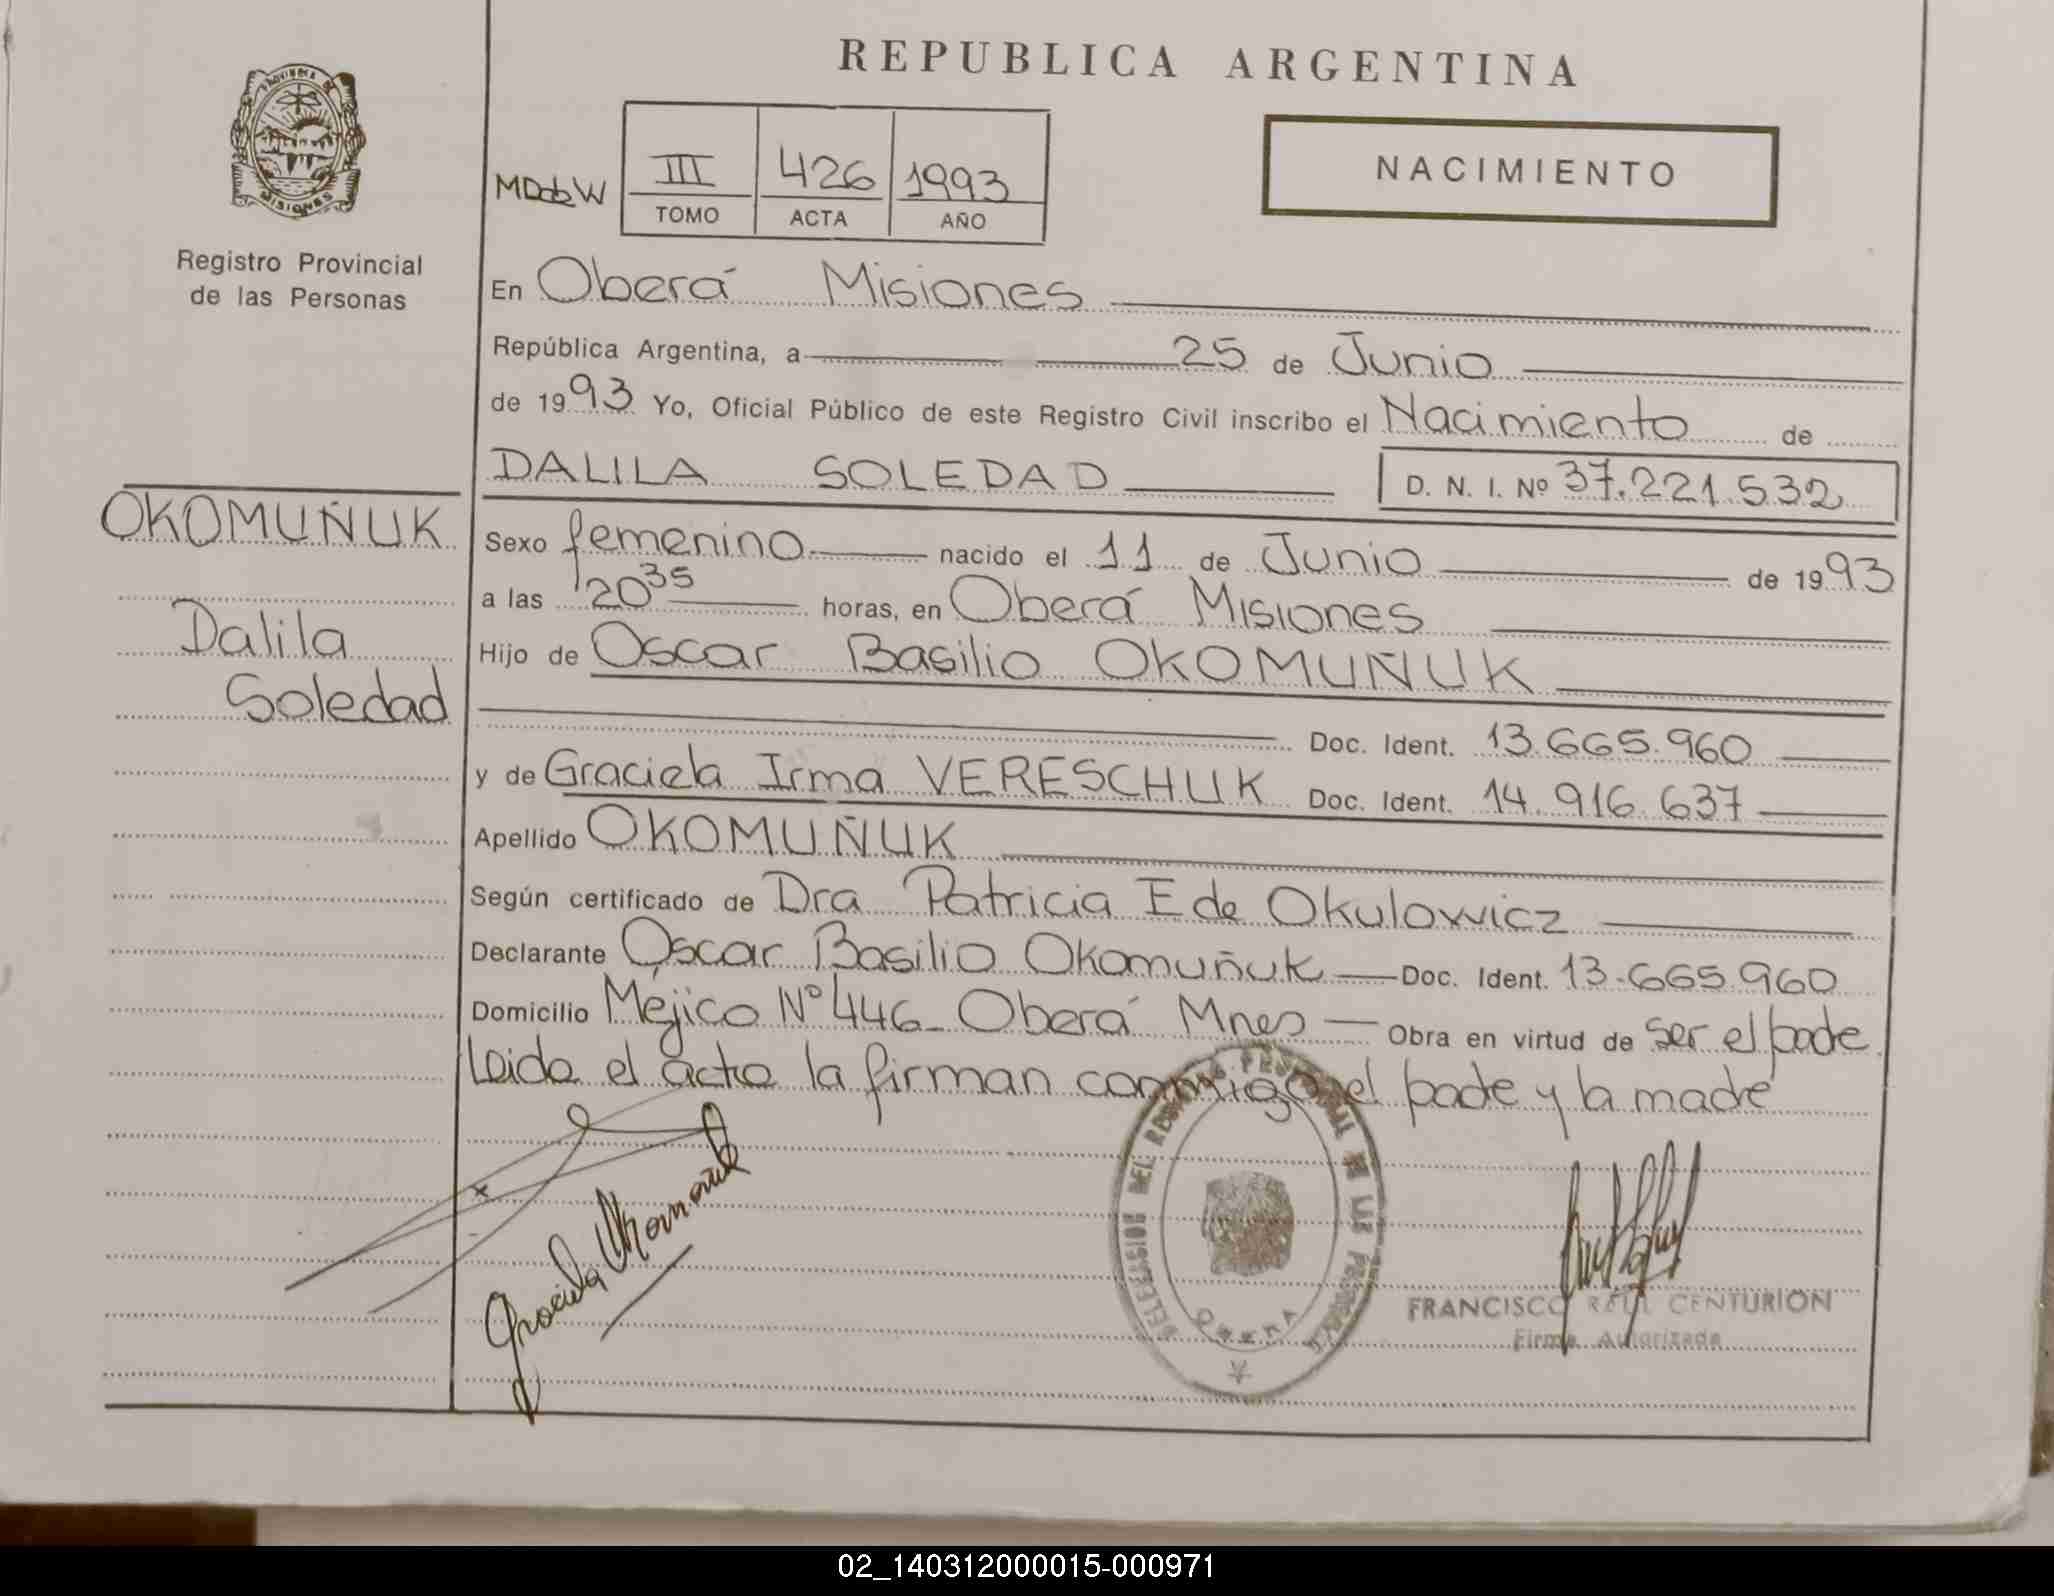 REPUBLICA ARGENTINA
PROVINCIA DE
MISIONES
Registro Provincial
de las Personas
III 426 1993
TOMO ACTA AÑO
NACIMIENTO
En Oberá Misiones
República Argentina, a 25 de Junio
de 1993 Yo, Oficial Público de este Registro Civil inscribo el Nacimiento de
DALILA SOLEDAD D. N. I. Nº 37.221.532
OKOMUÑUK
Dalila
Soledad
Sexo femenino nacido el 11 de Junio de 1993
a las 20 35 horas, en Oberá Misiones
Hijo de Oscar Basilio OKOMUÑUK
Doc. Ident. 13.665.960
y de Graciela Irma VERESCHUK Doc. Ident. 14.916.637
Apellido OKOMUÑUK
Según certificado de Dra Patricia E de Okulowicz
Declarante Oscar Basilio Okomuñuk Doc. Ident. 13.665.960
Domicilio Méjico Nº 446 - Oberá Mnes Obra en virtud de ser el padre
Leida el acta la firman conmigo el padre y la madre
Graciela Okomuñuk
DEL REGISTRO DE LAS
OBERA
FRANCISCO RAUL CENTURION
Firma Autorizada
02_140312000015-000971